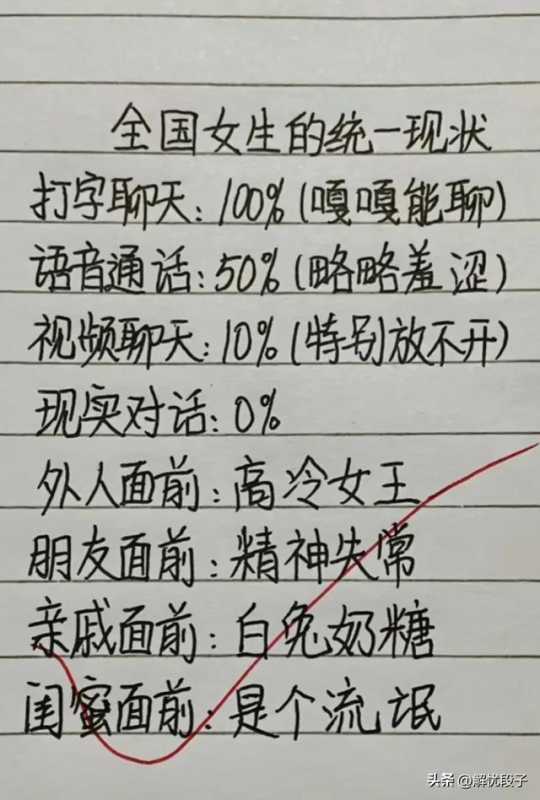 全国女生的统一现状
打字聊天：100%(嘎嘎能聊)
语音通话：50%(略略羞涩)
视频聊天：10%(特别放不开)
现实对话：0%
外人面前：高冷女王
朋友面前：精神失常
亲戚面前：白兔奶糖
闺蜜面前：是个流氓
头条 @解忧段子